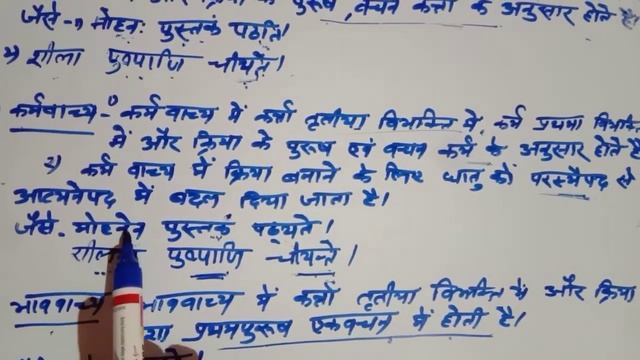 और क्रिया के पुरुष, वचन कर्त्ता के अनुसार होते हैं।
जैसे - 1) मोहनः पुस्तकं पठति।
2) शीला पुष्पाणि चीयते।
कर्मवाच्य - 1) कर्मवाच्य में कर्त्ता तृतीया विभक्ति में, कर्म प्रथमा विभक्ति
में और क्रिया के पुरुष एवं वचन कर्म के अनुसार होते हैं
2) कर्म वाच्य में क्रिया बनाने के लिए धातु को परस्मैपद से
आत्मनेपद में बदल दिया जाता है।
जैसे - मोहनेन पुस्तकं पठ्यते।
पुष्पाणि चीयन्ते।
भाववाच्य भाववाच्य में कर्त्ता तृतीया विभक्ति में और क्रिया
प्रथमपुरुष एकवचन में होती है।